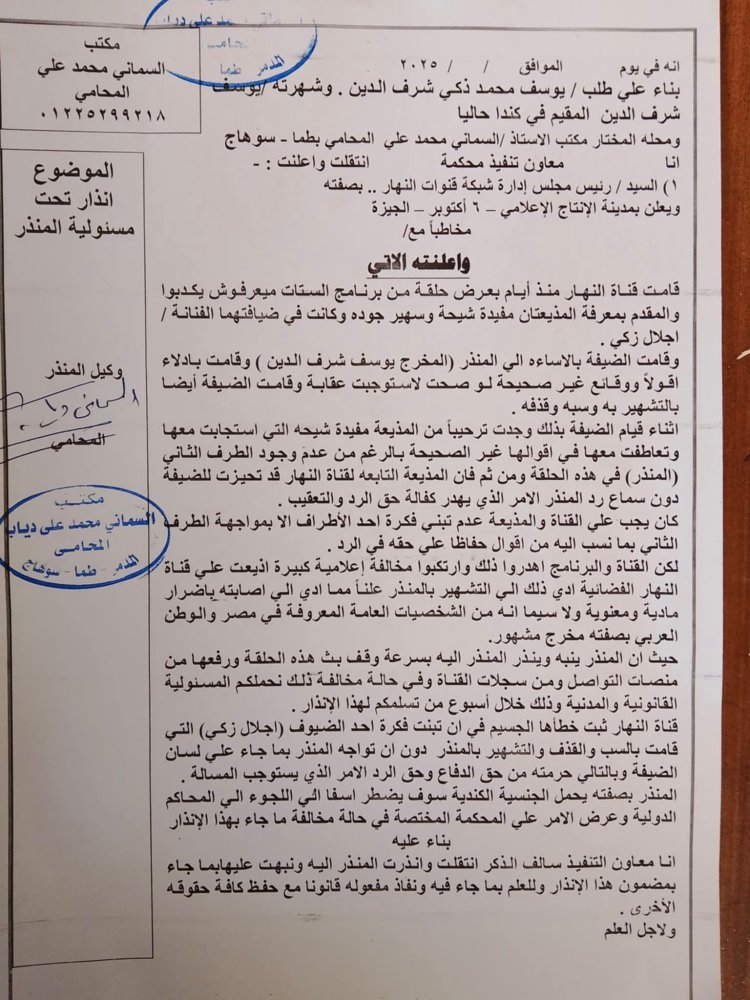 مكتب
السماني محمد علي
المحامي
٠١٢٢٥٢٩٩٢١٨
الموضوع
انذار تحت
مسئولية المنذر
وكيل المنذر
المحامي
مكتب
السماني محمد على دياب
المحامى
المدمر - طما - سوهاج
المدمر طما
انه في يوم الموافق / / ٢٠٢٥
بناء علي طلب / يوسف محمد ذكي شرف الدين . وشهرته /يوسف
شرف الدين المقيم في كندا حاليا
ومحله المختار مكتب الاستاذ /السماني محمد علي المحامي بطما - سوهاج
انا معاون تنفيذ محكمة انتقلت واعلنت : -
١) السيد / رئيس مجلس إدارة شبكة قنوات النهار .. بصفته
ويعلن بمدينة الإنتاج الإعلامي – ٦ أكتوبر – الجيزة
مخاطباً مع/
واعلنته الاتي
قامت قناة النهار منذ أيام بعرض حلقة من برنامج الستات ميعرفوش يكدبوا
والمقدم بمعرفة المذيعتان مفيدة شيحة وسهير جوده وكانت في ضيافتهما الفنانة /
اجلال زكي .
وقامت الضيفة بالاساءه الي المنذر (المخرج يوسف شرف الدين ) وقامت بادلاء
اقولاً ووقائع غير صحيحة لو صحت لاستوجبت عقابة وقامت الضيفة أيضا
بالتشهير به وسبه وقذفه .
اثناء قيام الضيفة بذلك وجدت ترحيباً من المذيعة مفيدة شيحه التي استجابت معها
وتعاطفت معها في اقوالها غير الصحيحة بالرغم من عدم وجود الطرف الثاني
(المنذر) في هذه الحلقة ومن ثم فان المذيعة التابعه لقناة النهار قد تحيزت للضيفة
دون سماع رد المنذر الامر الذي يهدر كفالة حق الرد والتعقيب .
كان يجب علي القناة والمذيعة عدم تبني فكرة احد الأطراف الا بمواجهة الطرف
الثاني بما نسب اليه من اقوال حفاظا علي حقه في الرد .
لكن القناة والبرنامج اهدروا ذلك وارتكبوا مخالفة إعلامية كبيرة اذيعت علي قناة
النهار الفضائية ادي ذلك الي التشهير بالمنذر علناً مما ادي الي اصابته باضرار
مادية ومعنوية ولا سيما انه من الشخصيات العامة المعروفة في مصر والوطن
العربي بصفته مخرج مشهور.
حيث ان المنذر ينبه وينذر المنذر اليه بسرعة وقف بث هذه الحلقة ورفعها من
منصات التواصل ومن سجلات القناة وفي حالة مخالفة ذلك نحملكم المسئولية
القانونية والمدنية وذلك خلال أسبوع من تسلمكم لهذا الإنذار .
قناة النهار ثبت خطأها الجسيم في ان تبنت فكرة احد الضيوف (اجلال زكي) التي
قامت بالسب والقذف والتشهير بالمنذر دون ان تواجه المنذر بما جاء علي لسان
الضيفة وبالتالي حرمته من حق الدفاع وحق الرد الامر الذي يستوجب المسالة .
المنذر بصفته يحمل الجنسية الكندية سوف يضطر اسفا الي اللجوء الي المحاكم
الدولية وعرض الامر علي المحكمة المختصة في حالة مخالفة ما جاء بهذا الإنذار
بناء عليه
انا معاون التنفيذ سالف الذكر انتقلت وانذرت المنذر اليه ونبهت عليهابما جاء
بمضمون هذا الإنذار وللعلم بما جاء فيه ونفاذ مفعوله قانونا مع حفظ كافة حقوقه
الأخرى .
ولاجل العلم